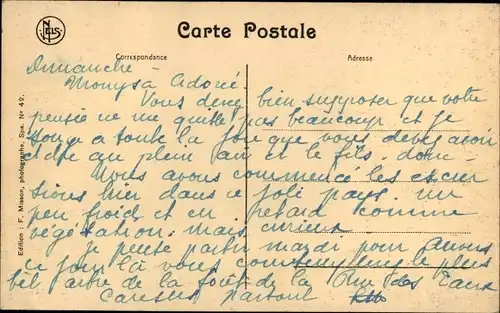 NELS
Carte Postale
Correspondance
Adresse
Edition : F. Misson, photographe, Spa. N° 42.
Dimanche -
Adoré
Vous devez bien supposer que votre
pensée ne me quitte pas beaucoup et je
songe a toute la joie que vous devez avoir
plein air et le fils. donc.
Nous avons commencé les excur
sions hier dans ce joli pays. un
peu froid et en retard comme
végétation. mais curieux
je partir mardi pour Anvers
ce jour là vous le plus
bel arbre de la forêt de la Rue des Eaux
Caresses partout